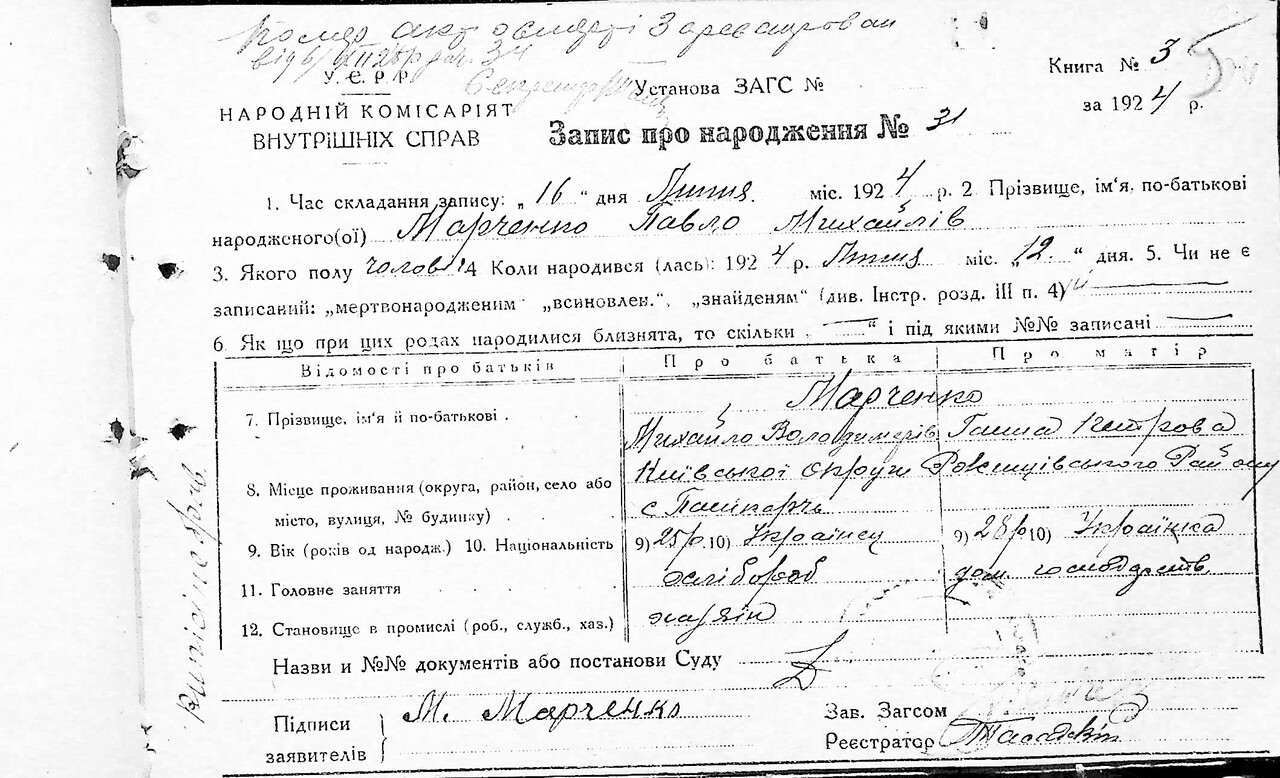 Номер акт о смерті Зареєстрован
від 6/VIII 28р за № 34
У.С.Р.Р.
Секретар
НАРОДНІЙ КОМІСАРІЯТ
ВНУТРІШНІХ СПРАВ
Установа ЗАГС №
Книга № 3
за 1924 р.
Запис про народження № 31
1. Час складання запису: „16“ дня Липня міс. 1924 р. 2. Прізвище, ім'я, по-батькові
народженого(ої) Марченко Павло Михайлів
3. Якого полу чолов. 4 Коли народився (лась): 1924 р. Липня міс. „12.“ дня. 5. Чи не є
записаний: „мертвонародженим“ „всиновлен.“, „знайденям“ (див. Інстр. розд. III п. 4)
6. Як що при цих родах народилися близнята, то скільки „—“ і під якими №№ записані —
Відомості про батьків Про батька Про матір
7. Прізвище, ім'я й по-батькові . Марченко
Михайло Володимерів Ганна Петрова
8. Місце проживання (округа, район, село або Київської округи Рожівського Району
місто, вулиця, № будинку) с
9. Вік (років од народж.) 10. Національність 9) 25р. 10) Українец 9) 28р. 10) Українка
11. Головне заняття хлібороб дом. господарств
12. Становище в промислі (роб., служб., хаз.) хазяїн
Назви и №№ документів або постанови Суду
Підписи
заявителів
М. Марченко
Зав. Загсом
Реєстратор